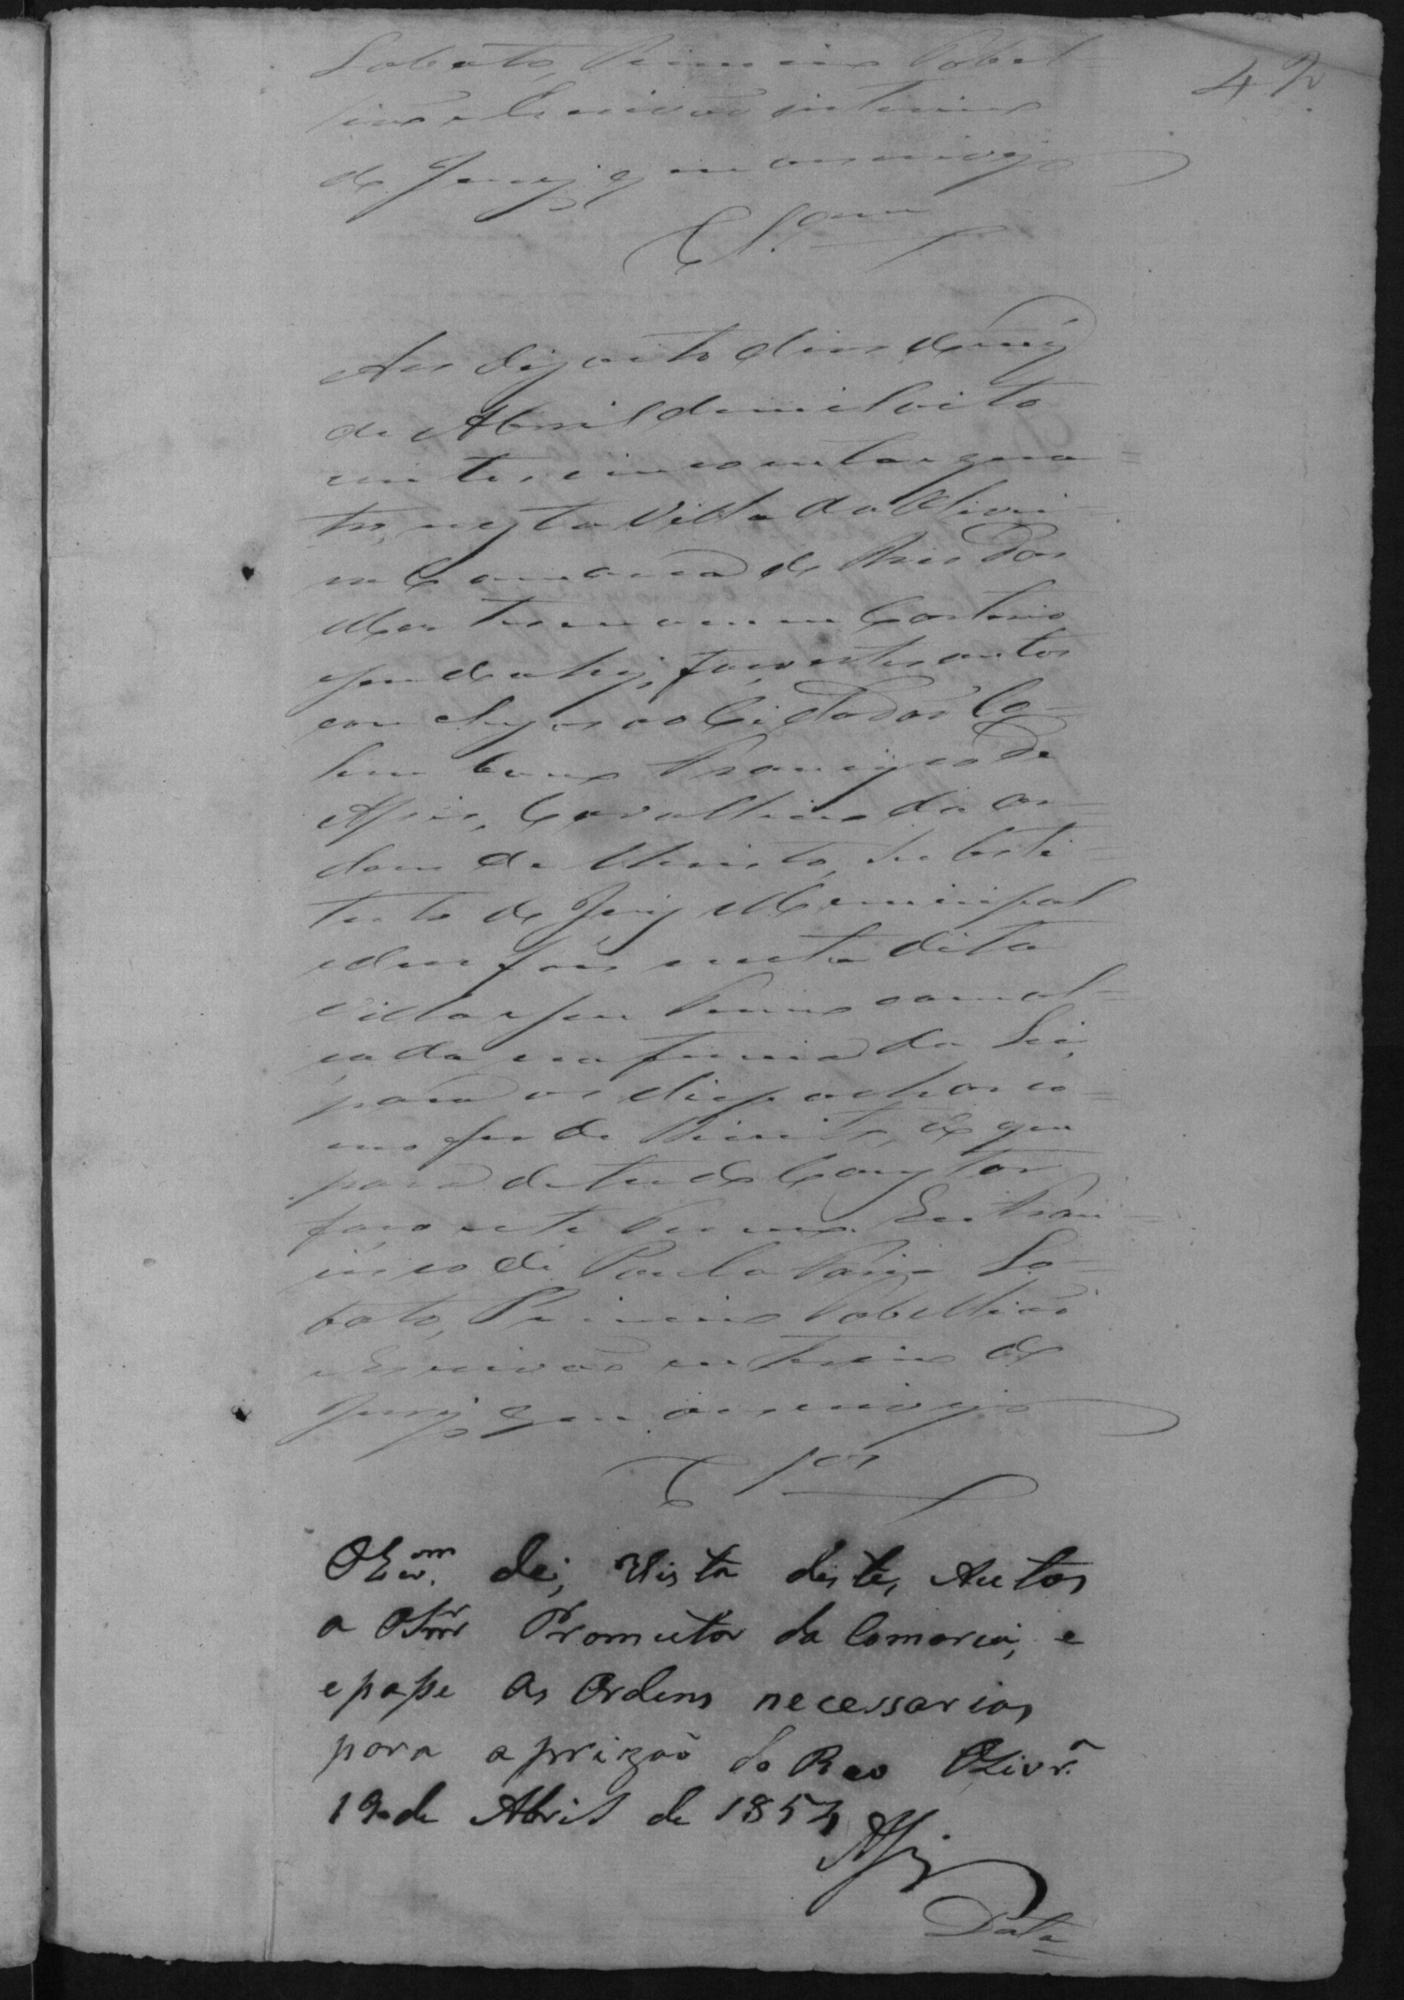 42
Lobato, Primeiro Tabel-
lião e Escrivão interino
do Jury que o escrevy
Clsam
Aos dizoito dias do mez
de Abril de mil oito
centos cincoenta e qua=
tro, nesta Villa da Olivei-
ra Comarca do Rio das
Mortes em meu Cartorio
sendo ahy, faço estes autos
conclusos ao Cidadão Ca-
Francisco de
Assis, Cavalleiro da Or-
dem de Christo, Substi-
tuto do Juiz Municipal
nesta dita
Villa e seu Termo
na forma da Lei,
para os despachar co-
mo for de Direito, de que
para de tudo constar
faço este termo. Eu Fran-
cisco de Paula Lo-
bato, Primeiro Tabellião
e Escrivão interino do
Jury que o escrevy
Clsos
O Escrm. dei, Vista deste, Autos
a O Promutor da Comarca, e
e passe as Ordens necessarias
para a prizaõ do Reo Olivra.
19 de Abril de 1854
Assis
Data